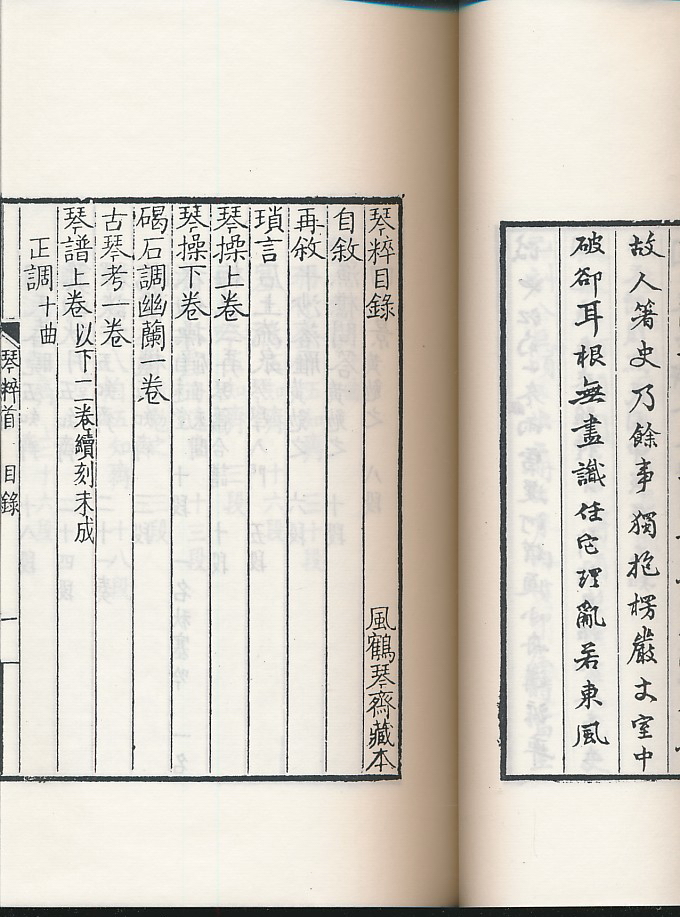 故人箸史乃餘事獨抱楞嚴丈室中
破卻耳根無盡識任它理亂若東風
琴粹目錄 風鶴琴齋藏本
自敘
再敘
瑣言
琴操上卷
琴操下卷
碣石調幽蘭一卷
古琴考一卷
琴譜上卷以下一卷續刻未成
正調十曲
琴粹首 目錄 一